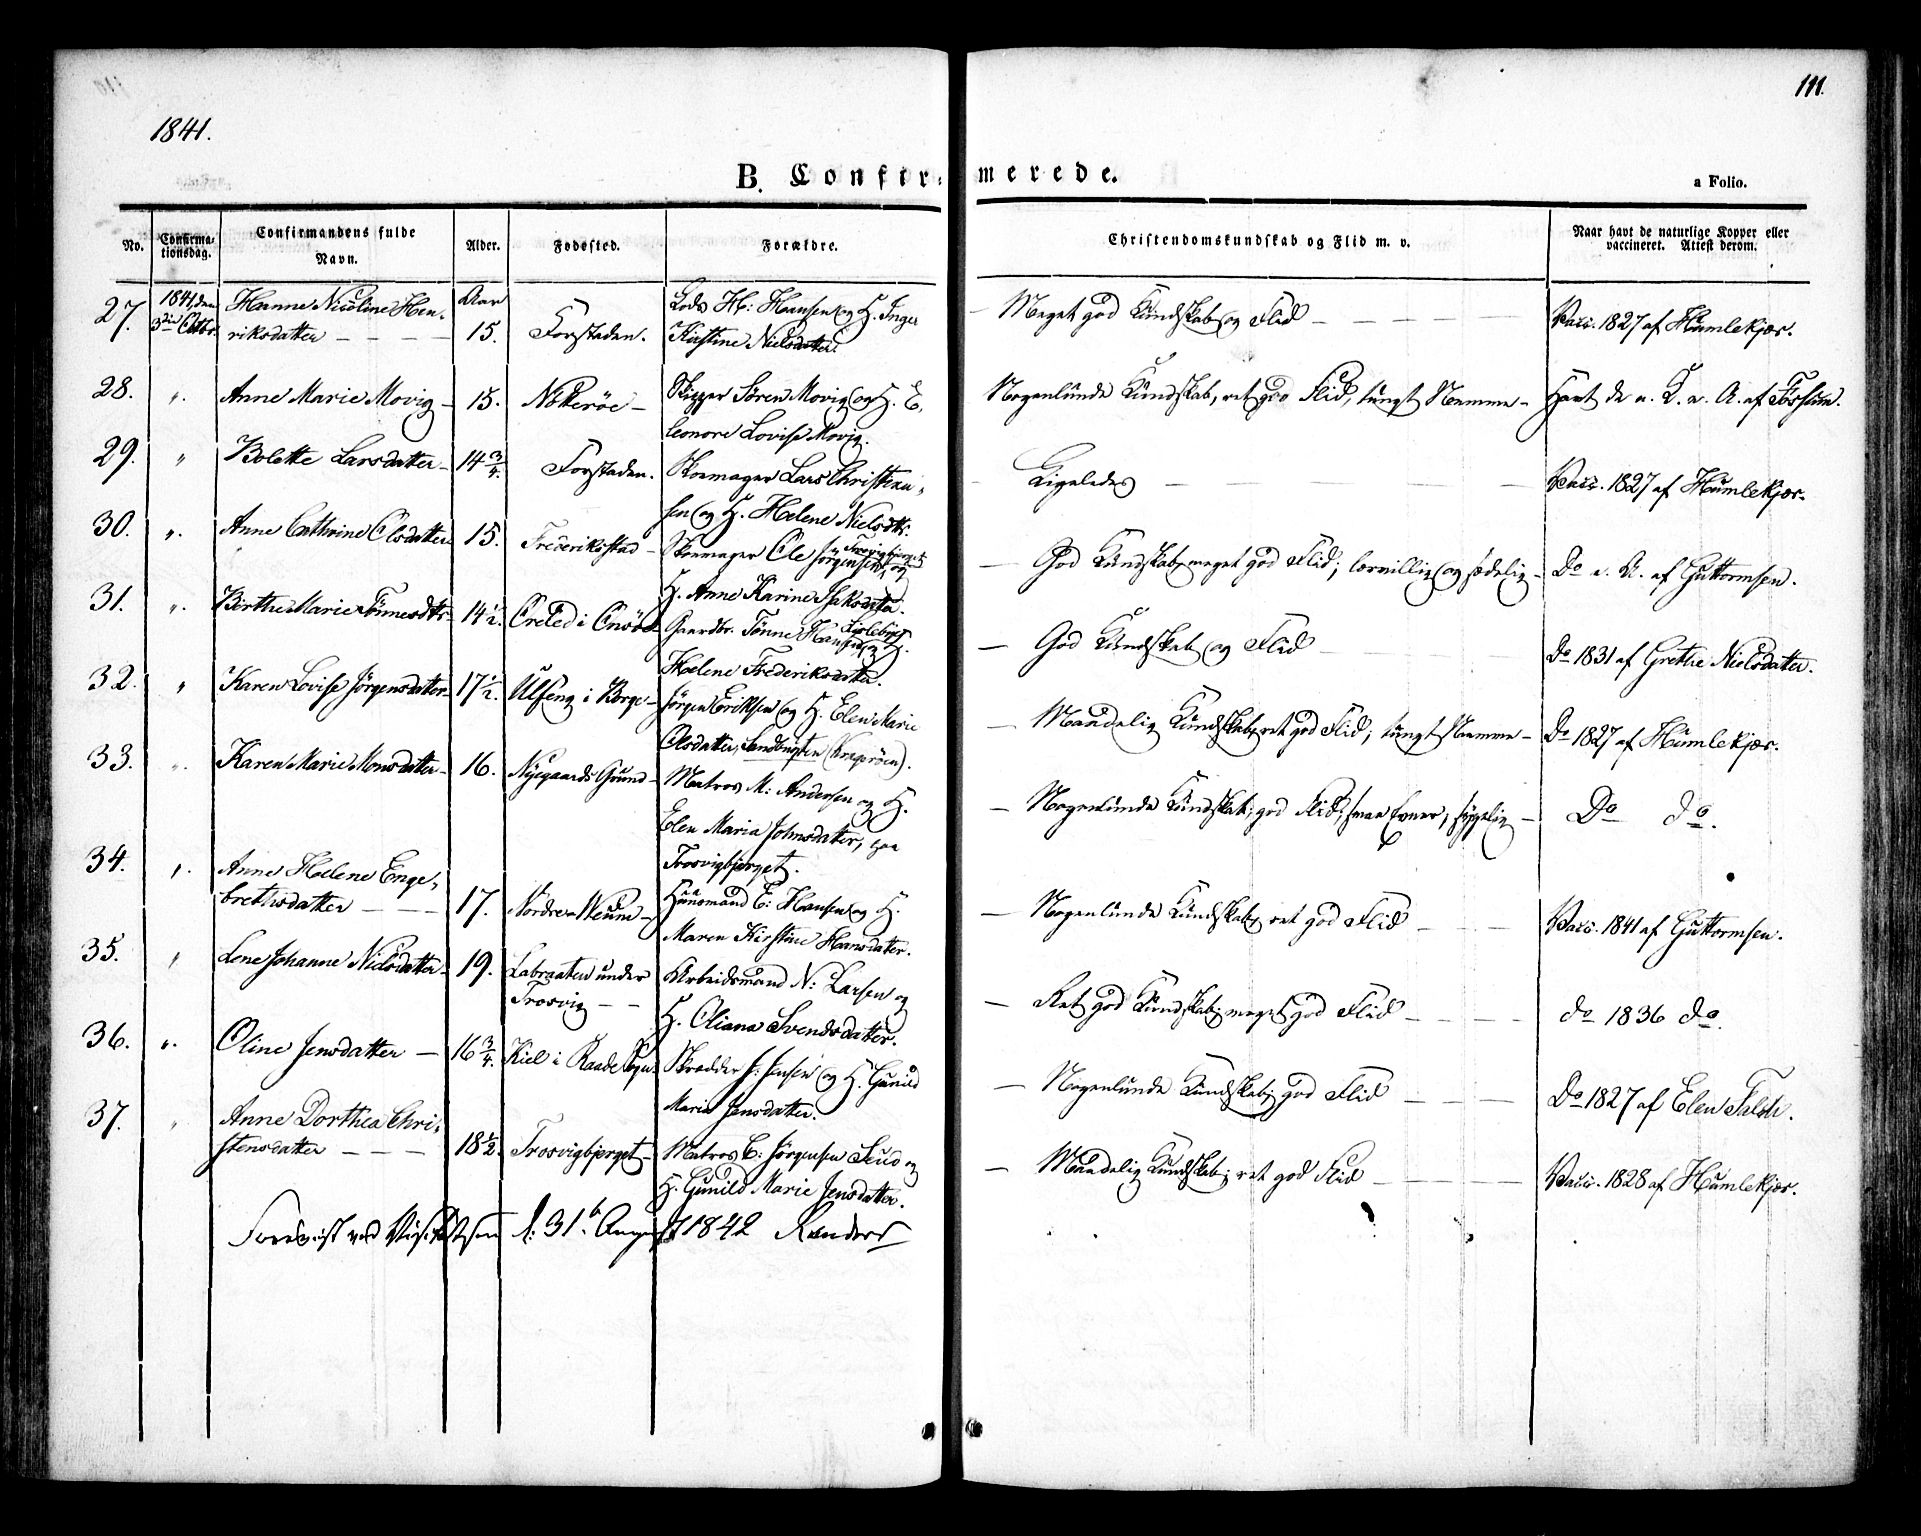 111.
1841.
B. Confir-merede.
a Folio.
No.
Confirma-
tionsdag.
Confirmandens fulde
Navn.
Alder.
Fødested.
Forældre.
Christendomskundskab og Flid m. v.
Naar havt de naturlige Kopper eller
vaccineret. Attest derom.
27. 1841, den 3die Octbr. Hanne Nicoline Hen-
riksdatter — — — Aar 15. Forstaden. Lods H: Hansen og H. Inger
Kirstine Nielsdatter. Meget god Kundskab og Flid — — — — Vacc. 1827 af Humlekjær.
28. ". Anne Marie Movig — 15. Nøkerøe — Skipper Søren Movig og H. E.
leonore Lovise Movig. Nogenlunde Kundskab, ret god Flid, tungt Nemme — Havt de n. K. e. A. af Fossum.
29. " Bolette Larsdatter — 14 3/4. Forstaden. Skomager Lars Christian-
sen og H. Helene Nielsdtr. Ligeledes — — — — Vacc. 1827 af Humlekjær.
30. ". Anne Cathrine Olsdatter 15. Frederiksstad — Skomager Ole Jörgensen, Trosvigbjerget og
H. Anne Karine Isaksdatter. — God Kundskab, meget god Flid; lærvillig og sædelig — Do e. A. af Guttormsen.
31. ". Birthe Marie Tönnesdtr 14 1/2. Oreled i Onsöe Gaardbr. Tönne Hansen og H.
Helene Frederiksdatter. — God Kundskab og Flid — — Do 1831 af Grethe Nielsdatter.
32. " Karen Lovise Jörgensdatter 17 1/2. Ulfeng i Borge — Jörgen Eriksen og H. Elen Marie
Olsdatter, Sandbugten (Krageröen). — Maadelig Kundskab, ret god Flid; tungt Nemme — Do 1827 af Humlekjær.
33. ". Karen Marie Monsdatter — 16. Nyegaards Grund — Matros M: Andersen og H.
Elen Maria Johnsdatter, paa
Trosvigbjerget. — Nogenlunde Kundskab; god Flid; smaa Evner, sygelig — Do do.
34. ". Anne Helene Enge-
brethsdatter — — 17. Nordre Weum — Huusmand E: Hansen og H.
Maren Kirstine Hansdatter. — Nogenlunde Kundskab, ret god Flid — — — Vacc. 1841 af Guttormsen.
35. " Lene Johanne Nielsdatter 19. Labraaten under
Trosvig — — Arbeidsmand N: Larsen og
H. Oliana Svendsdatter. — Ret god Kundskab, meget god Flid — — — do 1836 do.
36. ". Oline Jensdatter — 16 3/4. Kiel i Raade Sogn Skrædder J: Jensen og H. Gunild
Maria Jensdatter. — Nogenlunde Kundskab, god Flid — — — Do 1827 af Elen Falch.
37. " Anne Dorthea Chri-
stensdatter — — — 18 1/2. Trosvigbjerget — Matros C: Jörgensen Seud og
H. Gunild Marie Jensdatter. — Maadelig Kundskab; ret god Flid — — — Vacc. 1828 af Humlekjær.
Foreviist ved Visitatsen d: 31te August 1842